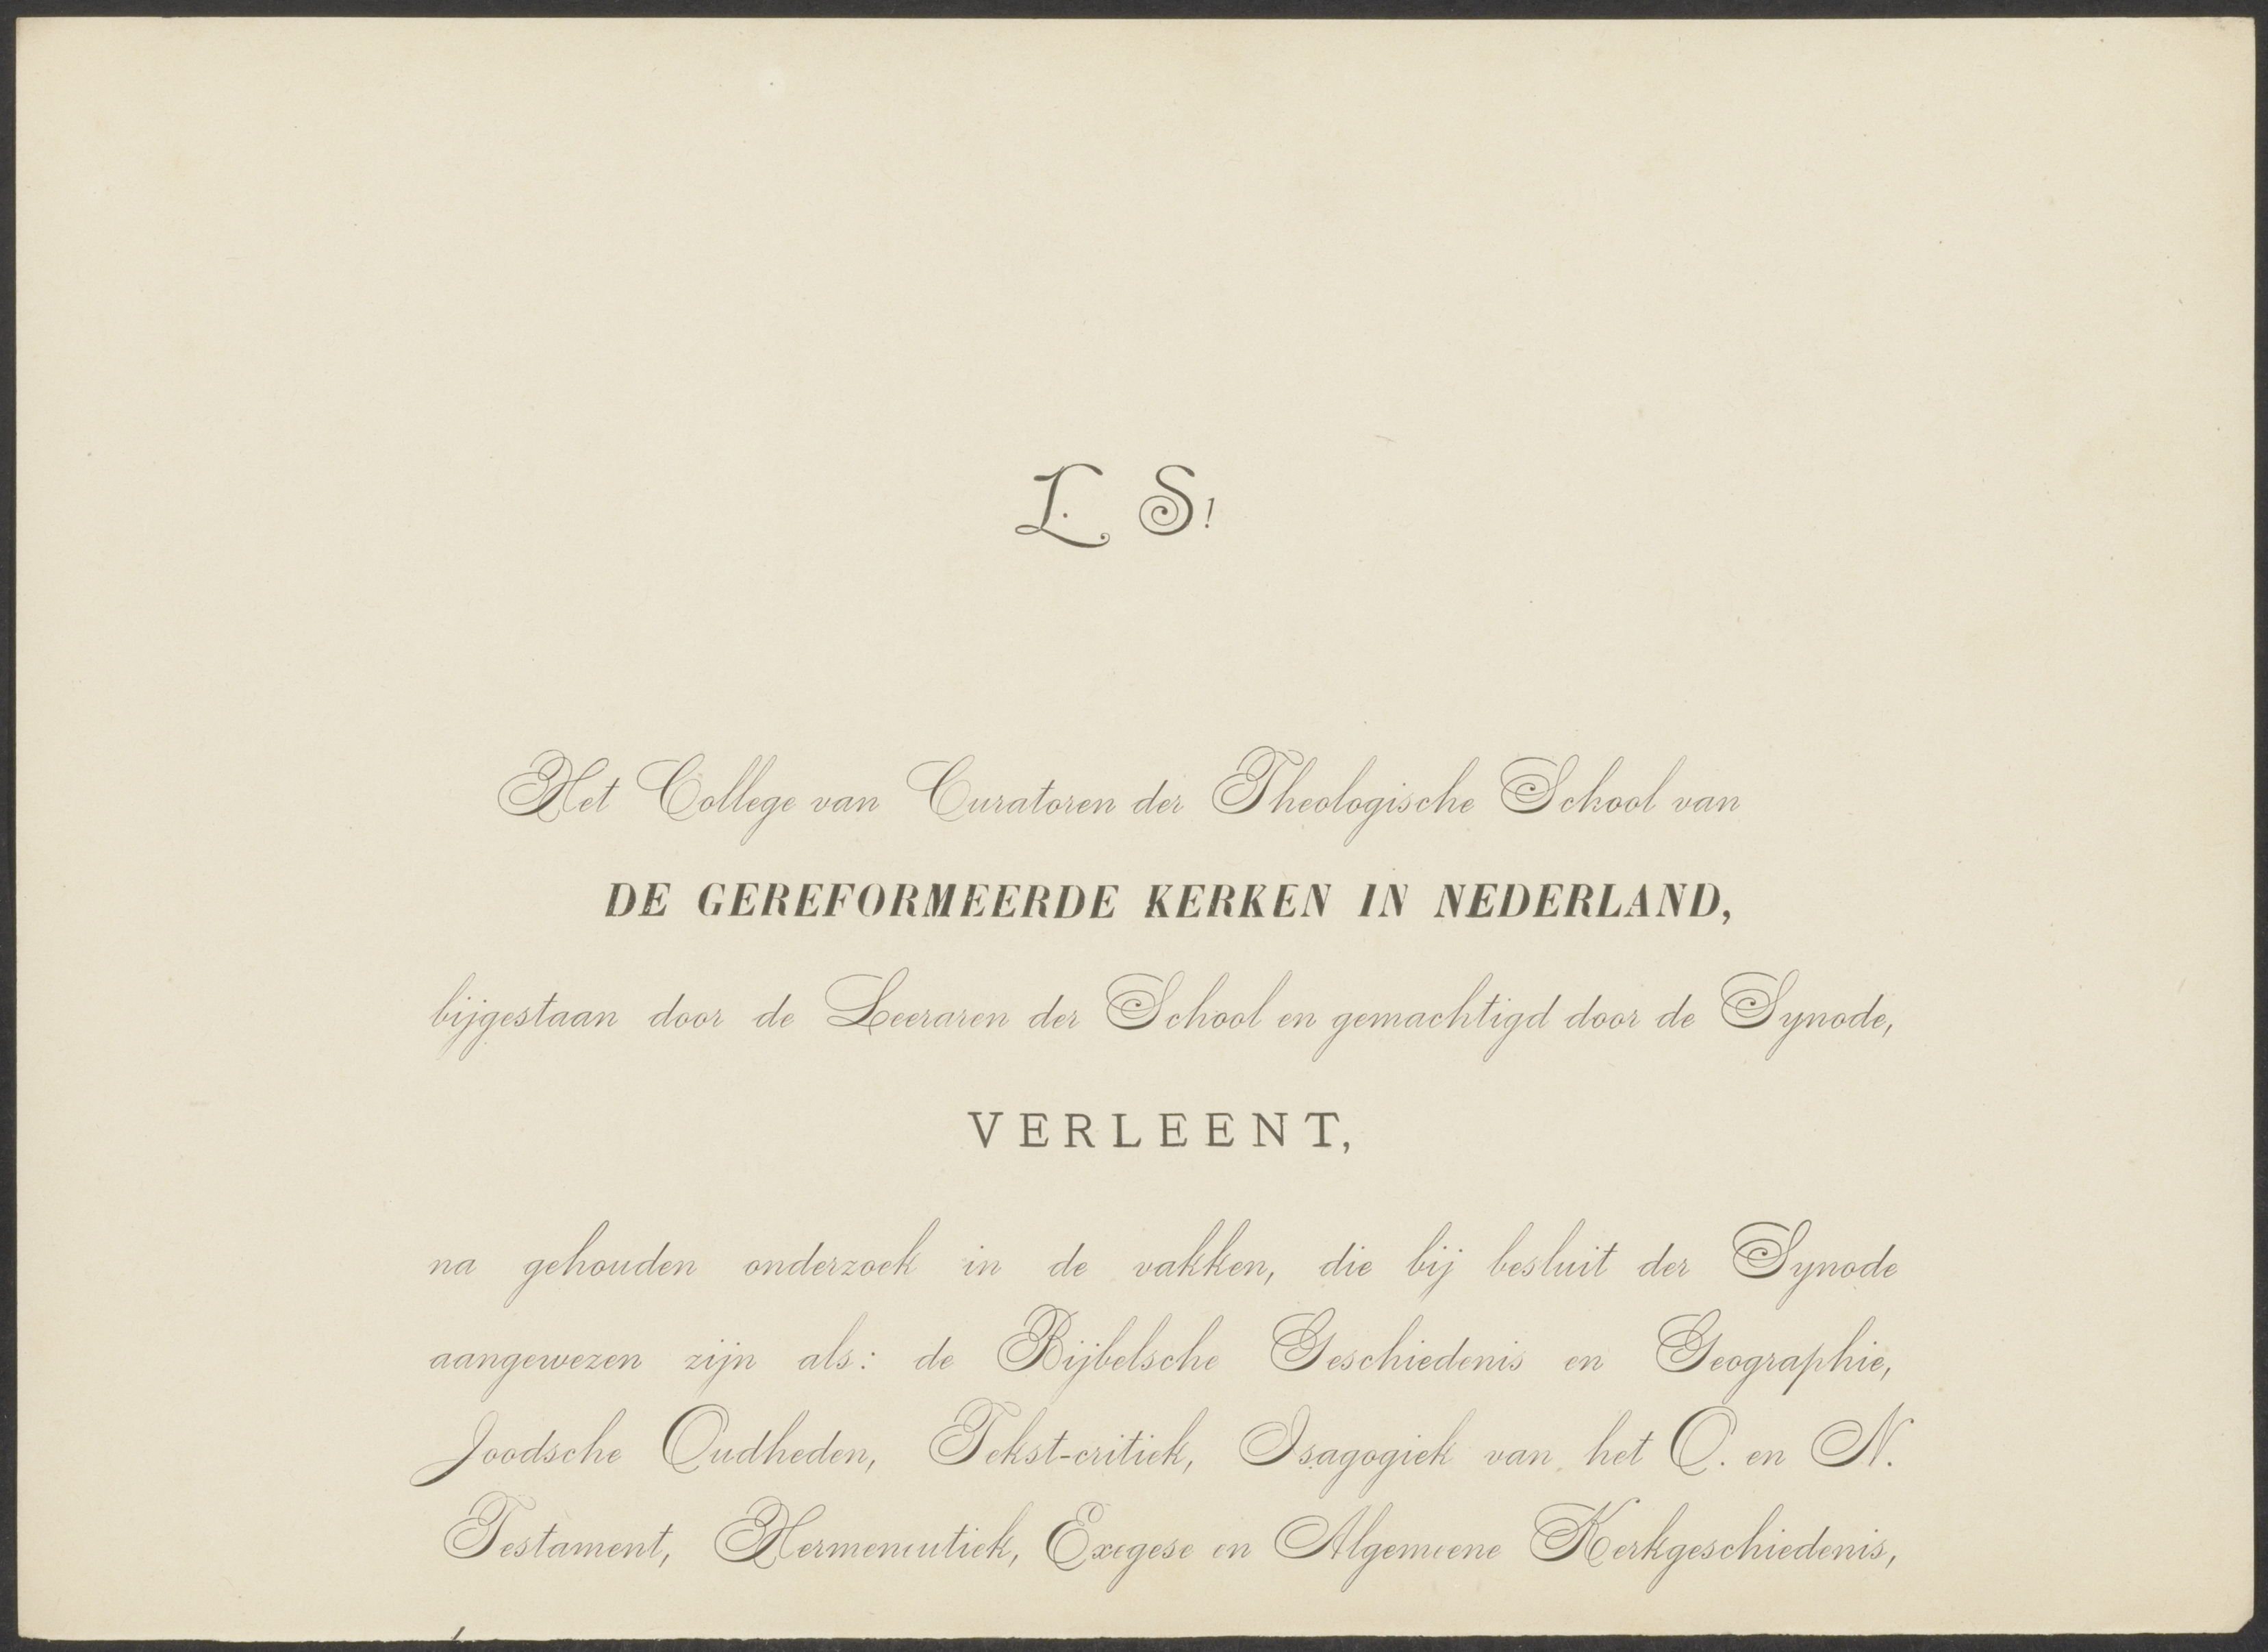 L. S!
Het College van Curatoren der Theologische School van
DE GEREFORMEERDE KERKEN IN NEDERLAND,
bijgestaan door de Leeraren der School en gemachtigd door de Synode,
VERLEENT,
na gehouden onderzoek in de vakken, die bij besluit der Synode
aangewezen zijn als: de Bijbelsche Geschiedenis en Geographie,
Joodsche Oudheden, Tekst-critiek, Isagogiek van het O. en N.
Testament, Hermeneutiek, Exegese en Algemeene Kerkgeschiedenis,